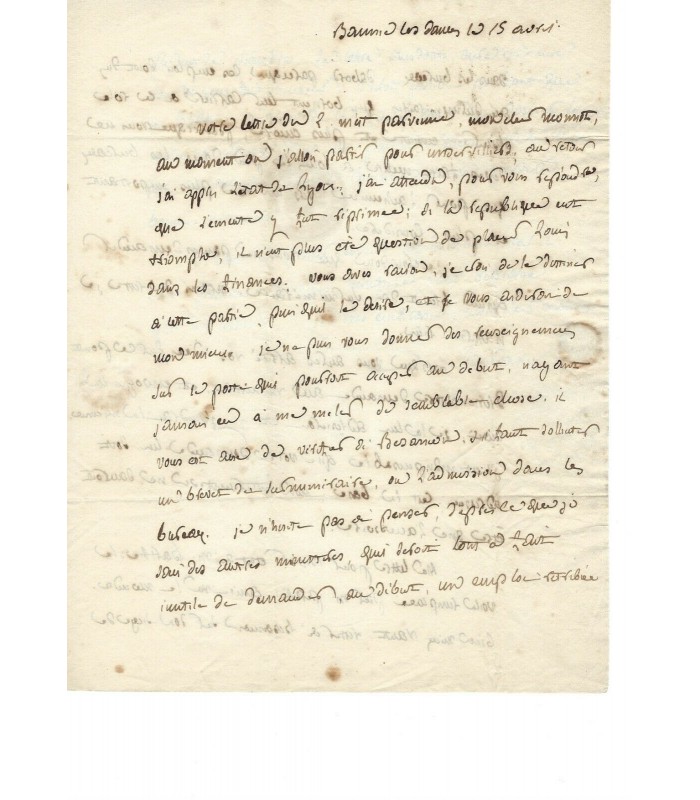 Baume les dames le 15 avril.
votre lettre du 2 m'est parvenue, mon cher monnot,
au moment où j'allois partir pour undervilliers, au retour
j'ai appris l'état de Lyon; j'ai attendu, pour vous repondre,
que l'emeute y fut reprimée; si la republique eut
triomphé, il n'eut plus eté question de placer Louis
dans les finances. vous avez raison, je crois de le destiner
à cette partie, puisqu'il le desire, et je vous aiderai de
mon mieux. je ne puis vous donner des renseignemens
sur le poste qu'il pourroit occuper au debut, n'ayant
jamais eu à me meler de semblable chose. il
vous est aisé de verifier si Besancon, s'il faut solliciter
un brevet de surnumeraire, ou l'admission dans les
bureaux. je n'hesite pas à penser, d'après ce que je
sais des autres ministeres qu'il seroit tout à fait
inutile de demander, au debut, un emploi retribué